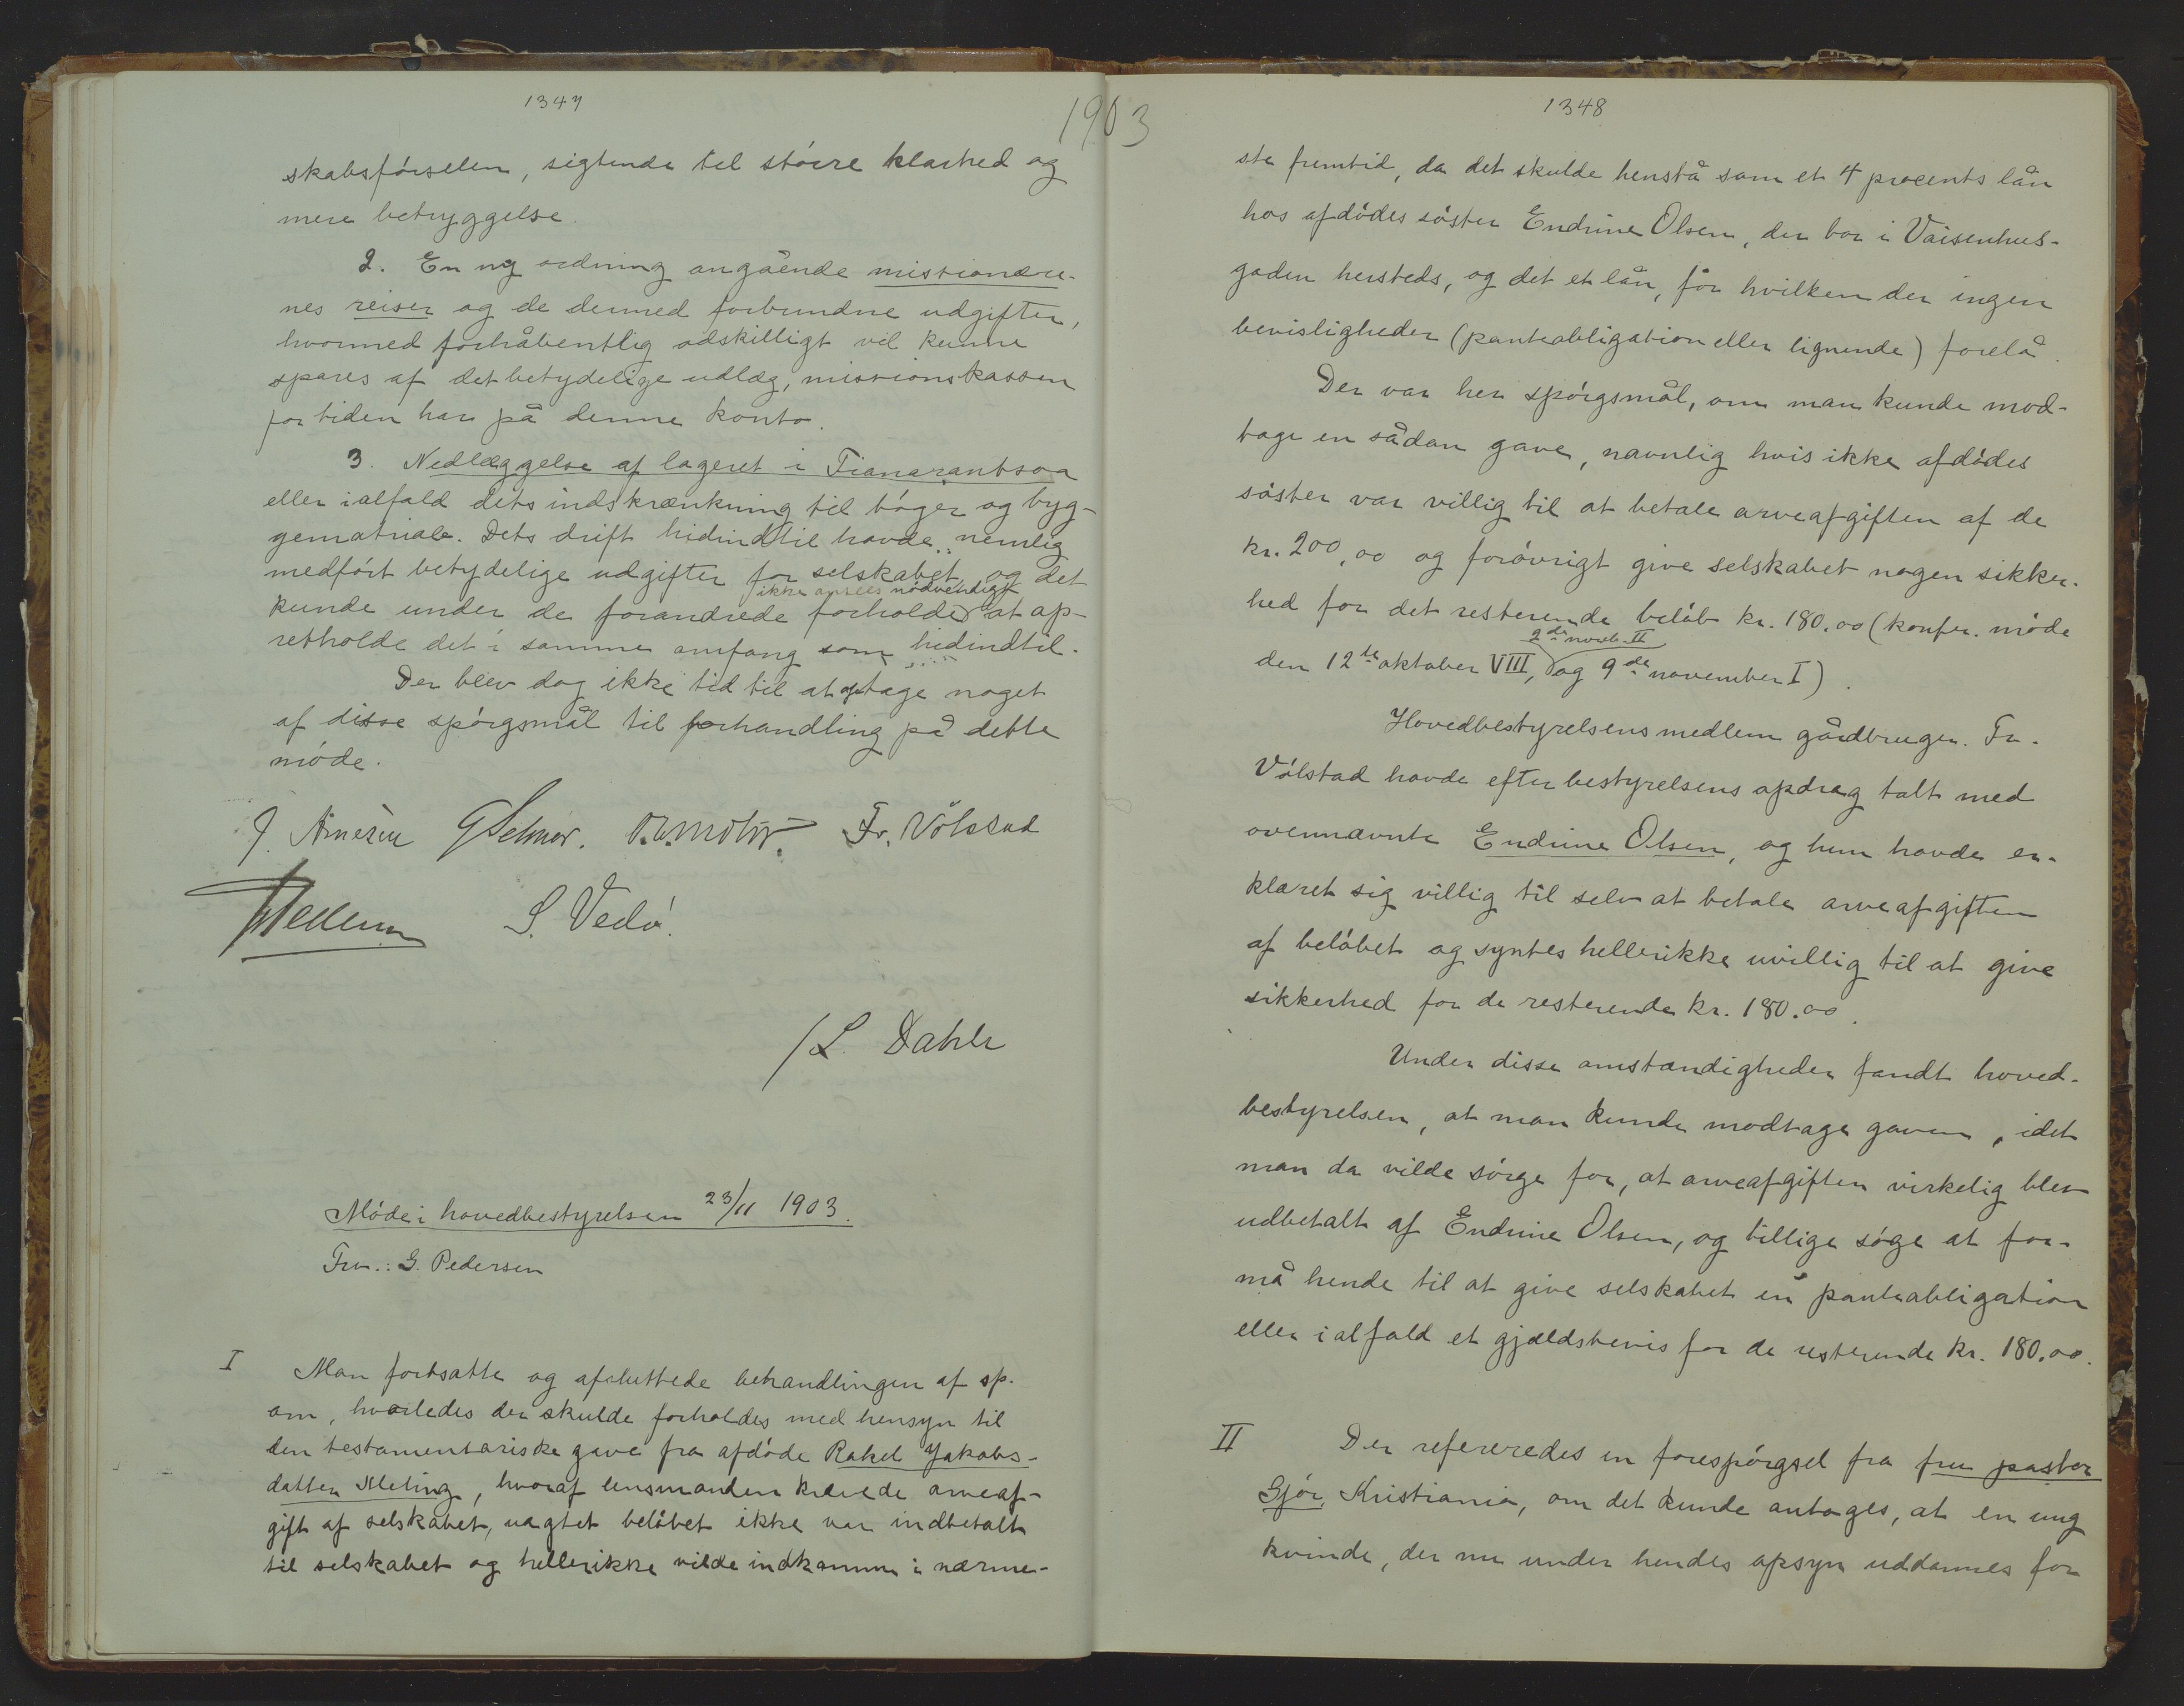 1347
1903
skabsførselen, sigtende til større klarhed og
mere betryggelse.
2. En ny ordning angående missionære-
nes reiser og de dermed forbundne udgifter,
hvormed forhåbentlig adskilligt vil kunne
spares af det betydelige udlæg, missionskassen
for tiden har på denne konto.
3. Nedlæggelse af lageret i Fianarantsoa
eller ialfald dets indskrænkning til bøger og byg-
gematriale. Dets drift hidindtil havde nemlig
medført betydelige udgifter for selskabet, og det
ikke ansees nødvendigt
kunde under de forandrede forholde at op-
retholde det i samme omfang som hidindtil.
Der blev dog ikke tid til at optage noget
af disse spørgsmål til forhandling på dette
møde.
J. Arnesen Fr. Vølstad
S. Vedø.
/L. Dahle
Møde i hovedbestyrelsen 23/11 1903.
Frv.: G. Pedersen
I Man fortsatte og afsluttede behandlingen af sp.
om, hvorledes der skulde forholdes med hensyn til
den testamentariske gave fra afdøde Rakel Jakobs-
datter Meling, hvoraf lensmanden krævede arveaf-
gift af selskabet, uagtet beløbet ikke var indbetalt
til selskabet og hellerikke vilde indkomme i nærme-
1348
ste fremtid, da det skulde henstå som et 4 procents lån
hos afdødes søster Endrine Olsen, der bor i Vaisenhus-
gaden hersteds, og det et lån, for hvilken der ingen
bevisligheder (panteobligation eller lignende) forelå.
Der var her spørgsmål, om man kunde mod-
tage en sådan gave, navnlig hvis ikke afdødes
søster var villig til at betale arveafgiften af de
kr. 200,00 og forøvrigt give selskabet nogen sikker-
hed for det resterende beløb kr. 180.00 (konfr. møde
2de novb. II
den 12te oktober VIII, og 9de november I).
Hovedbestyrelsens medlem gårdbruger. Fr.
Vølstad havde efter bestyrelsens opdrag talt med
ovennævnte Endrine Olsen, og hun havde er-
klæret sig villig til selv at betale arveafgiften
af beløbet og syntes hellerikke uvillig til at give
sikkerhed for de resterende kr. 180.00.
Under disse omstændigheder fandt hoved-
bestyrelsen, at man kunde modtage gaven, idet
man da vilde sørge for, at arveafgiften virkelig blev
udbetalt af Endrine Olsen, og tillige søge at for-
må hende til at give selskabet en panteobligation
eller ialfald et gjældsbevis for de resterende kr. 180.00.
II Der refereredes en forespørgsel fra fru pastor
Gjør, Kristiania, om det kunde antages, at en ung
kvinde, der nu under hendes opsyn uddannes for